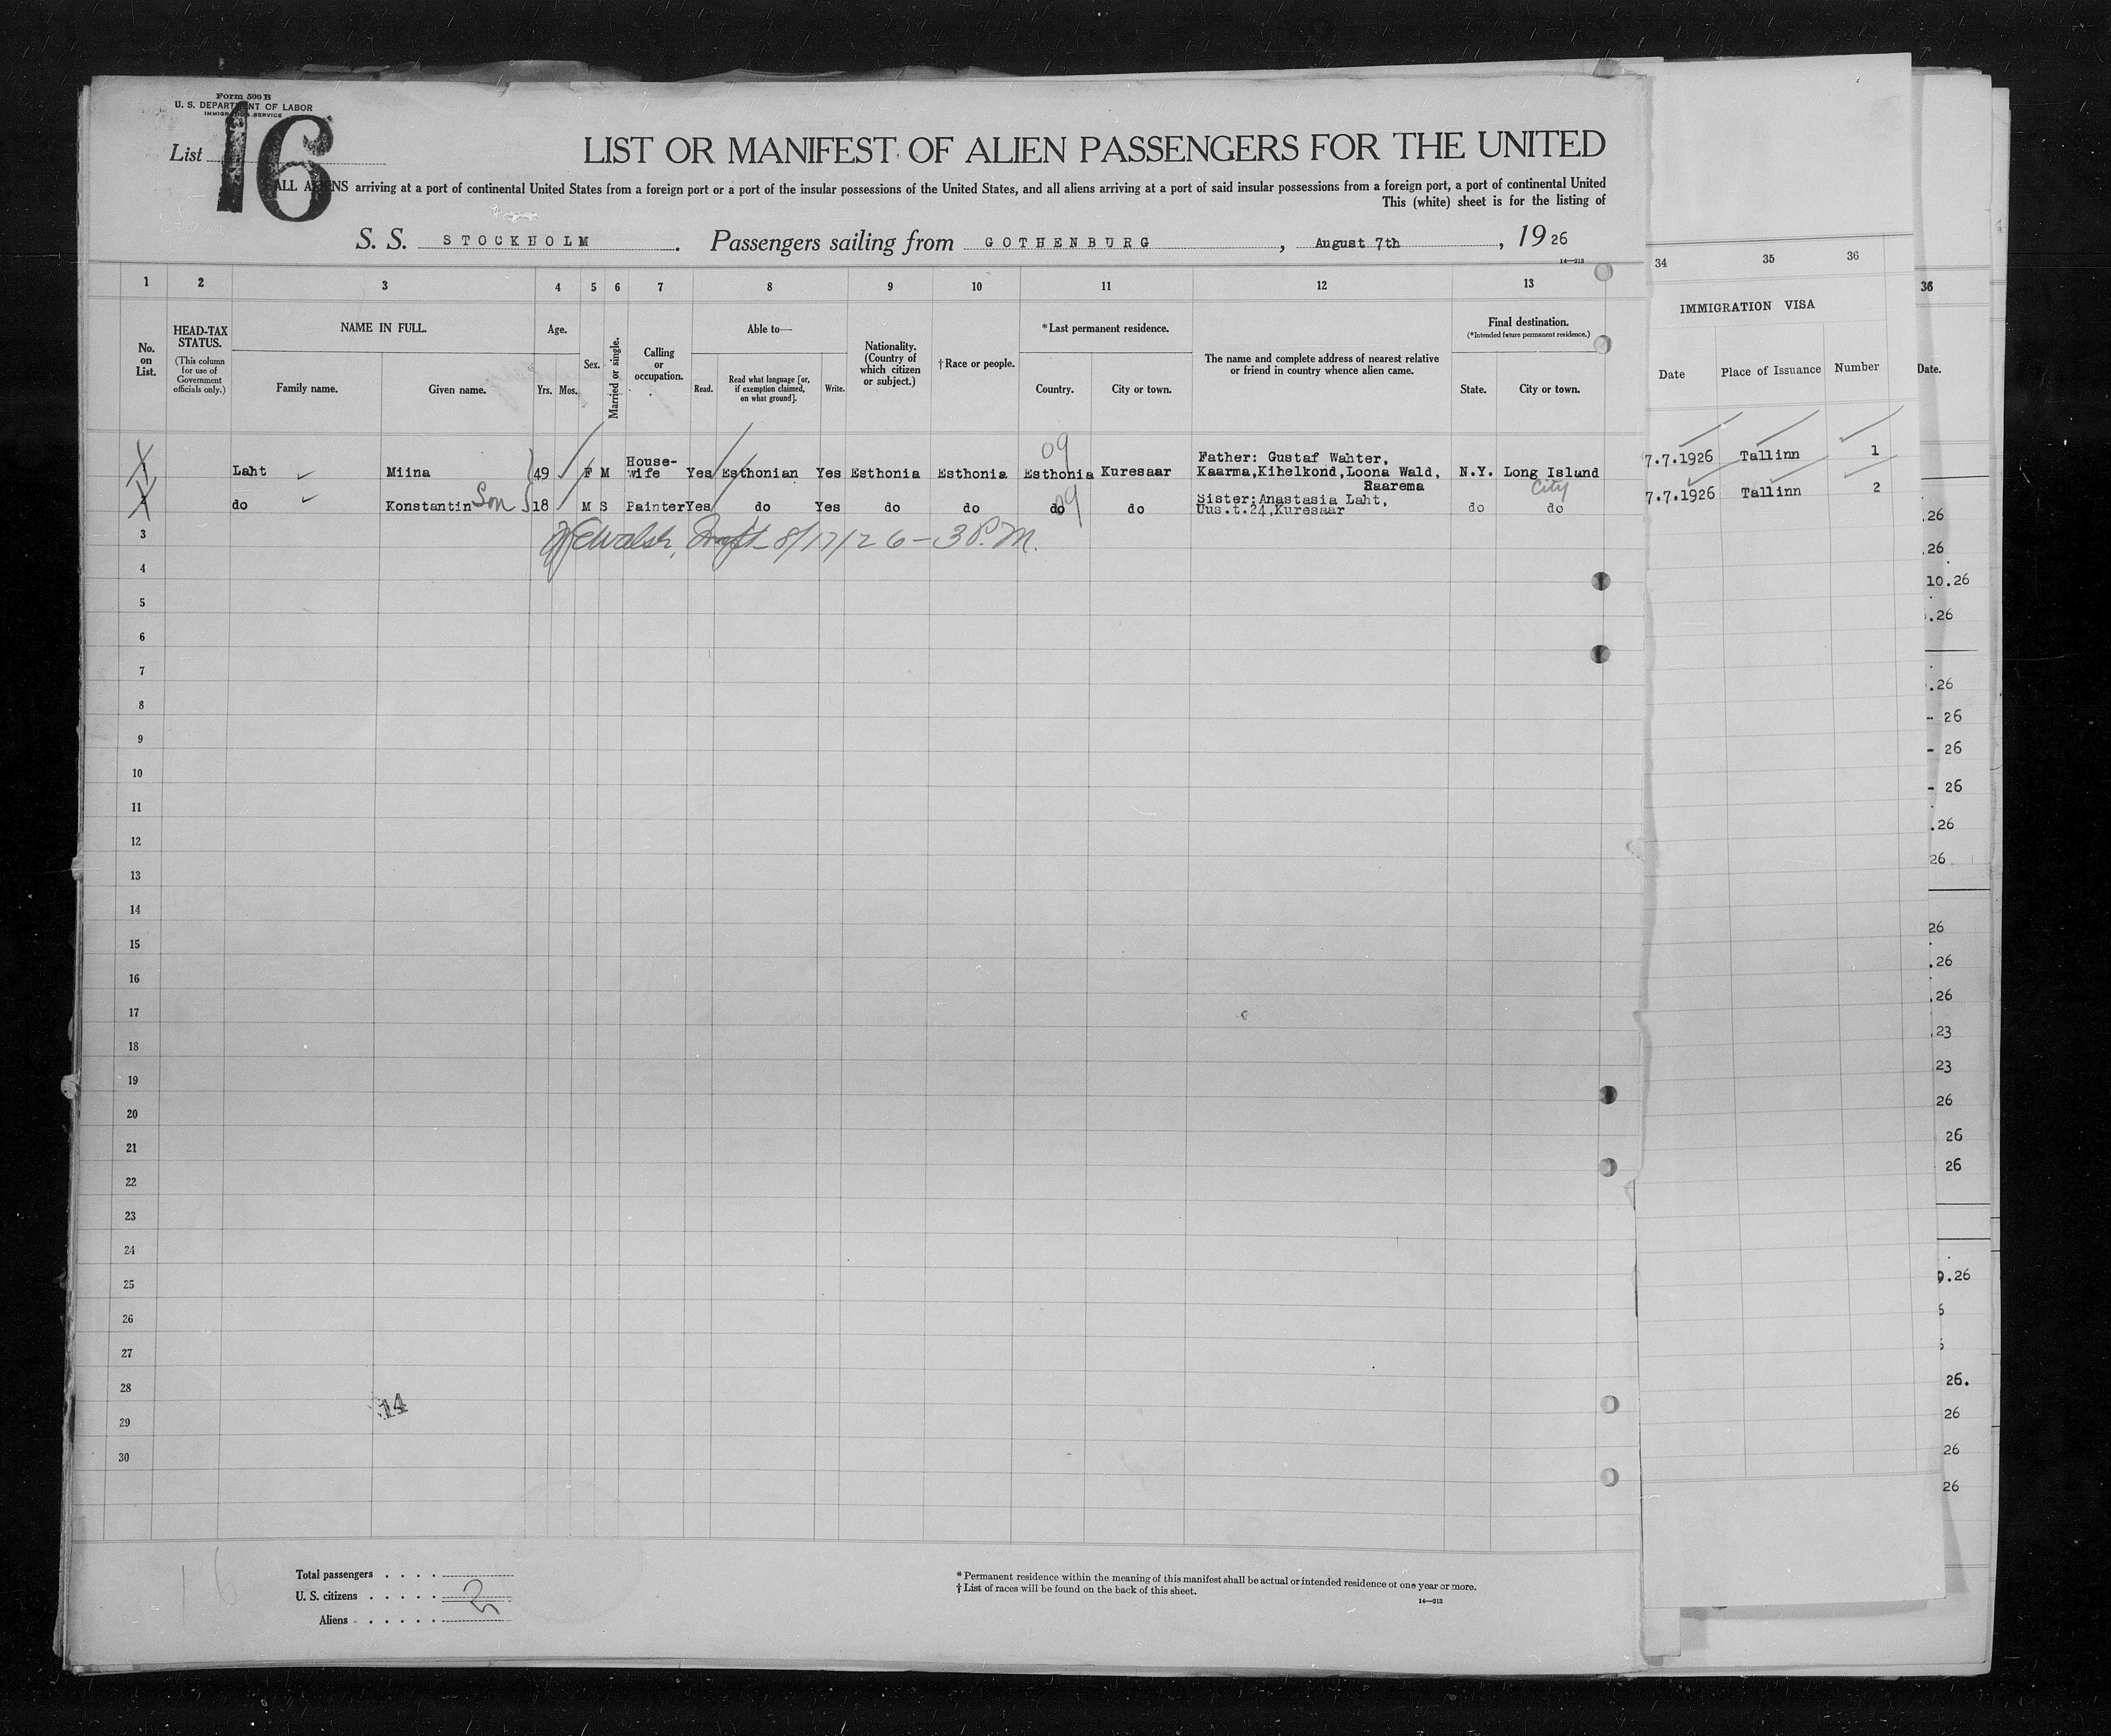 Form 500 B
U. S. DEPARTMENT OF LABOR
IMMIGRATION SERVICE
List 16
LIST OR MANIFEST OF ALIEN PASSENGERS FOR THE UNITED
ALL ALIENS arriving at a port of continental United States from a foreign port or a port of the insular possessions of the United States, and all aliens arriving at a port of said insular possessions from a foreign port, a port of continental United
This (white) sheet is for the listing of
S. S. STOCKHOLM. Passengers sailing from GOTHENBURG, August 7th, 1926
14—213
1 2 3 4 5 6 7 8 9 10 11 12 13
No. on List.
HEAD-TAX STATUS.
(This column for use of Government officials only.)
NAME IN FULL.
Family name. Given name.
Age.
Yrs. Mos.
Sex.
Married or single.
Calling or occupation.
Able to—
Read. Read what language [or, if exemption claimed, on what ground]. Write.
Nationality. (Country of which citizen or subject.)
†Race or people.
*Last permanent residence.
Country. City or town.
The name and complete address of nearest relative or friend in country whence alien came.
Final destination.
(*Intended future permanent residence.)
State. City or town.
34 35 36
IMMIGRATION VISA
Date Place of Issuance Number
36
Date.
09
Laht Miina 49 F M House-wife Yes Esthonian Yes Esthonia Esthonia Esthonia Kuresaar Father: Gustaf Wahter, Kaarma,Kihelkond,Loona Wald, Saarema N.Y. Long Island City 7.7.1926 Tallinn 1
do Konstantin Son 18 M S Painter Yes do Yes do do do 09 do Sister:Anastasia Laht, Uus.t.24,Kuresaar do do 7.7.1926 Tallinn 2
8/17/26 - 3 P.M.
3
4
5
6
7
8
9
10
11
12
13
14
15
16
17
18
19
20
21
22
23
24
25
26
27
28
29
30
.26
.26
10.26
.26
.26
- 26
- 26
- 26
.26
26
26
.26
.26
.23
23
26
26
26
.26
26.
26
26
26
14
16
Total passengers . . . .
U. S. citizens . . . . . 2
Aliens . . . . . .
* Permanent residence within the meaning of this manifest shall be actual or intended residence of one year or more.
† List of races will be found on the back of this sheet.
14—213